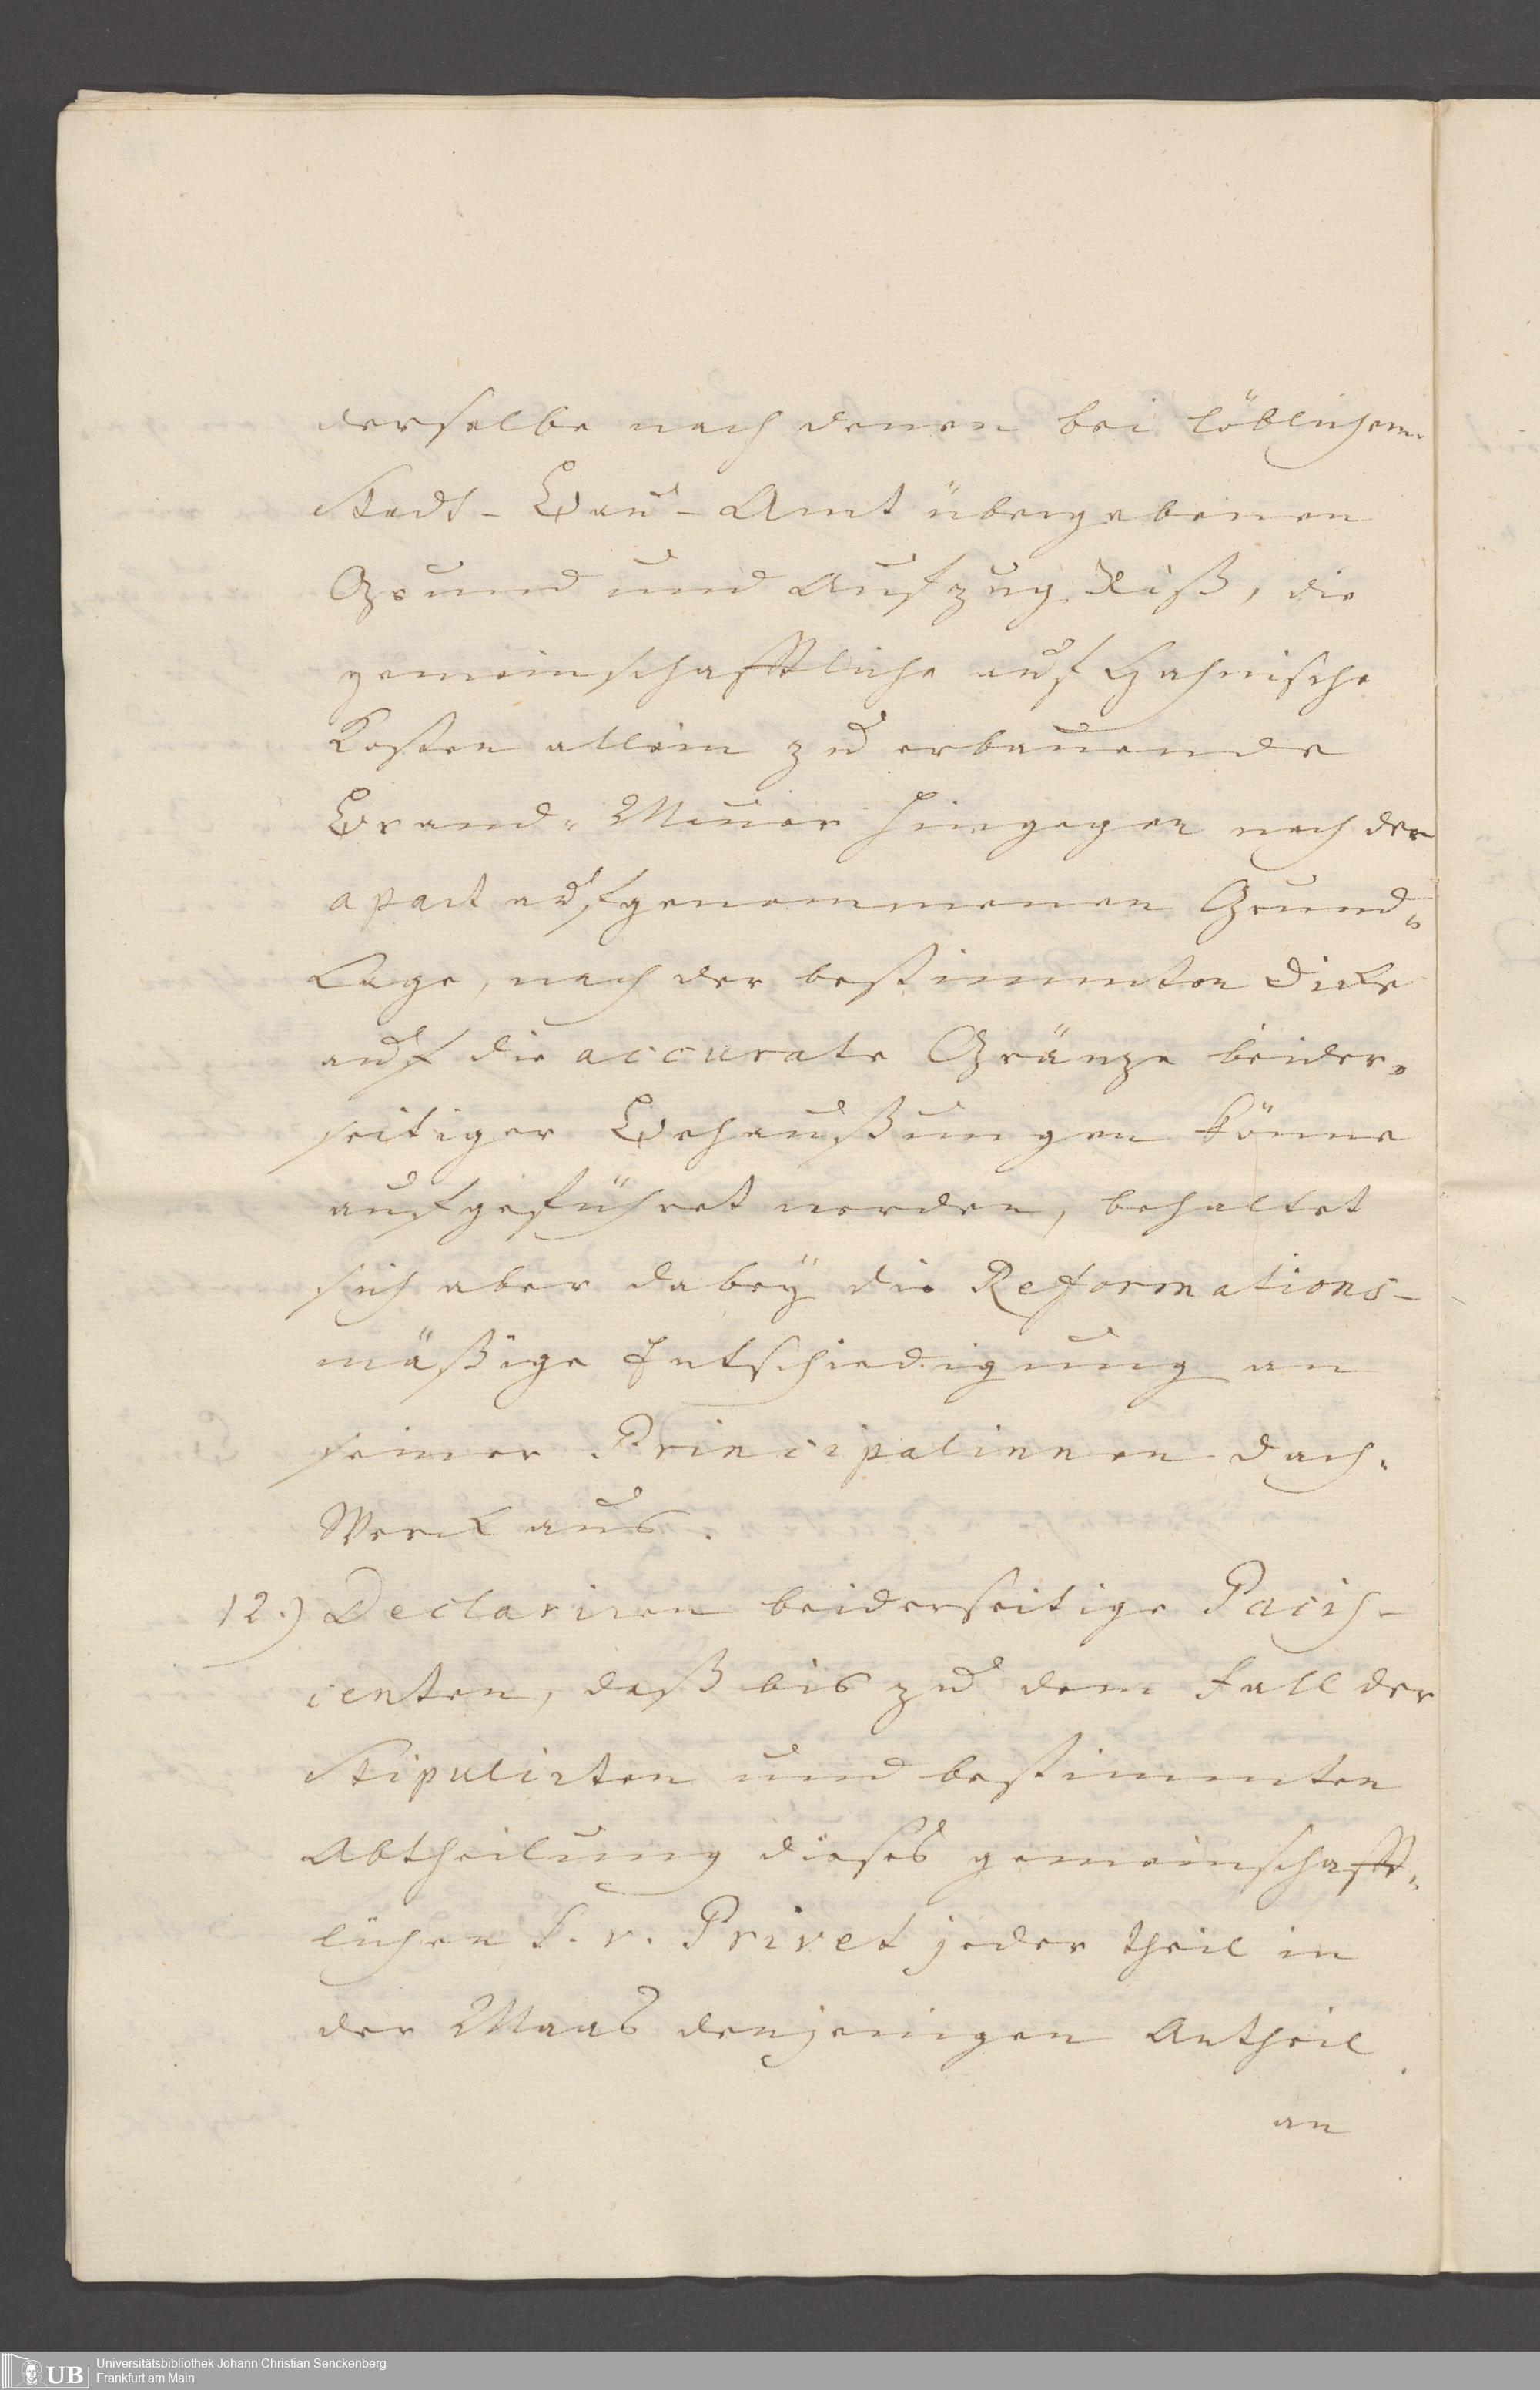 derselbe nach denen bei löblichem
Stadt-Bau-Amt übergebenen
Grund und Aufzug Riß, die
gemeinschafftliche auf Hahnische
Kosten allein zu erbauende
Brand-Mauer hingegen nach der
apart aufgenommenen Grund-
Lage, nach der bestimmten Dicke
auf die accurate Gränze beider-
seitiger Behaußungen könne
aufgeführet werden, behaltet
sich aber dabeÿ die Reformations-
mäßige Entschiedigung an
seiner Principalinnen Dach-
Werck aus.
12.) Declariren beiderseitige Pacis-
centen, daß bis zu dem Fall der
Stipulirten und bestimmten
Abtheilung dieses gemeinschafft-
lichen S. v. Privet jeder theil in
der Maas denjenigen Antheil
an
UB Universitätsbibliothek Johann Christian Senckenberg
Frankfurt am Main